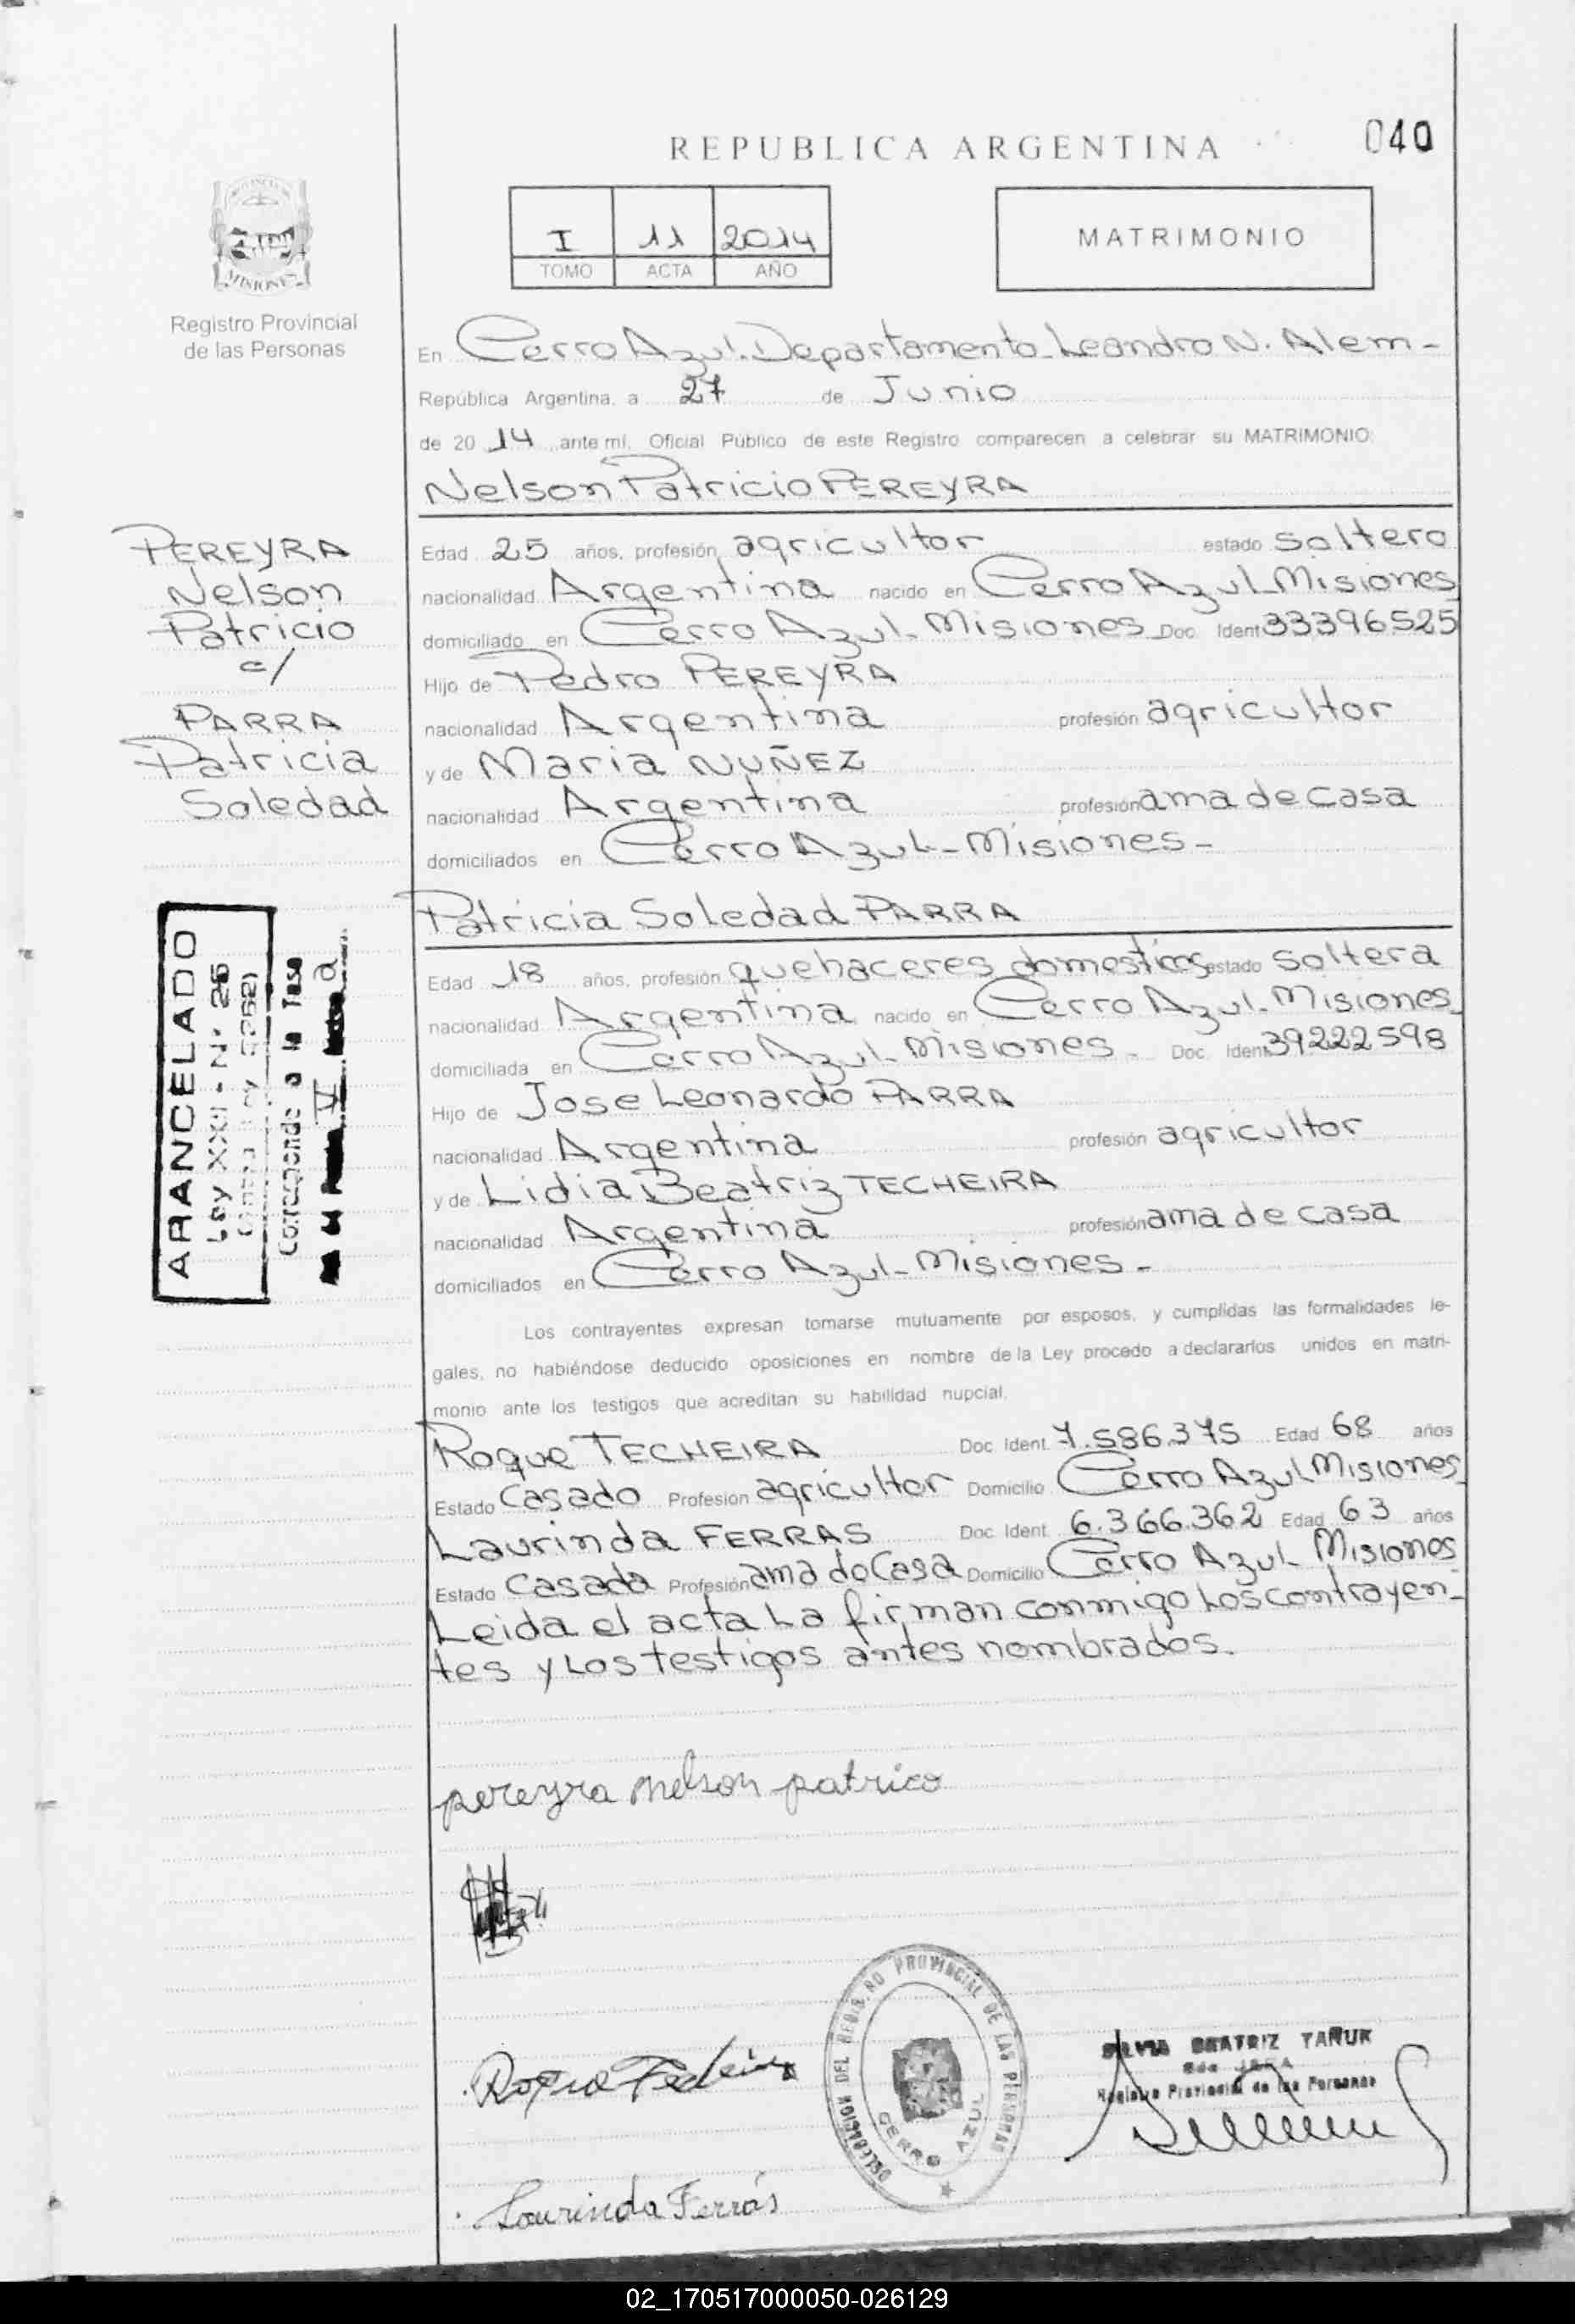 REPUBLICA ARGENTINA
040
PROVINCIA DE
MISIONES
Registro Provincial
de las Personas
I 11 2014
TOMO ACTA AÑO
MATRIMONIO
En Cerro Azul. Departamento Leandro N. Alem -
República Argentina, a 27 de Junio
de 20 14 ante mí, Oficial Público de este Registro comparecen a celebrar su MATRIMONIO:
Nelson Patricio PEREYRA
PEREYRA
Nelson
Patricio
c/
PARRA
Patricia
Soledad
Edad 25 años, profesión agricultor estado soltero
nacionalidad Argentina nacido en Cerro Azul-Misiones
domiciliado en Cerro Azul-Misiones Doc. Ident 33396525
Hijo de Pedro PEREYRA
nacionalidad Argentina profesión agricultor
y de Maria NUÑEZ
nacionalidad Argentina profesión ama de casa
domiciliados en Cerro Azul-Misiones-
Patricia Soledad PARRA
Edad 18 años, profesión quehaceres domesticos estado soltera
nacionalidad Argentina nacido en Cerro Azul-Misiones
domiciliada en Cerro Azul-Misiones- Doc. Ident 39222598
Hijo de Jose Leonardo PARRA
nacionalidad Argentina profesión agricultor
y de Lidia Beatriz TECHEIRA
nacionalidad Argentina profesión ama de casa
domiciliados en Cerro Azul-Misiones-
ARANCELADO
Ley XXII - Nº 25
Corresponde a la Tasa
VI a
Los contrayentes expresan tomarse mutuamente por esposos, y cumplidas las formalidades le-
gales, no habiéndose deducido oposiciones en nombre de la Ley procedo a declararlos unidos en matri-
monio ante los testigos que acreditan su habilidad nupcial.
Roque TECHEIRA Doc. Ident. 7.586.375 Edad 68 años
Estado Casado Profesión agricultor Domicilio Cerro Azul Misiones
Laurinda FERRAS Doc. Ident. 6.366.362 Edad 63 años
Estado Casada Profesión ama de Casa Domicilio Cerro Azul Misiones
Leida el acta La firman conmigo Los contrayen-
tes y Los testigos antes nombrados.
pereyra nelson patrico
DELEGACION DEL REGISTRO PROVINCIAL DE LAS PERSONAS
CERRO AZUL
SILVIA BEATRIZ TAÑUK
Registro Provincial de las Personas
Laurinda Ferrás
02_170517000050-026129